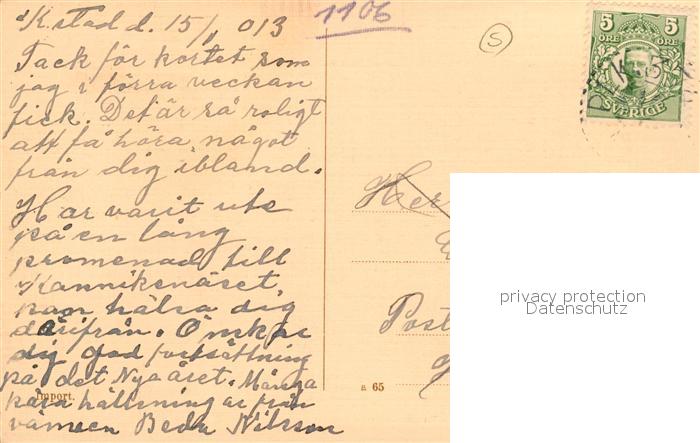 K.stad d. 15/1 013
Tack för kortet som
jag i förra veckan
fick. Det är så roligt
att få höra något
från dig ibland.
Har varit ute
på en lång
promenad till
Kannikenäset,
kan hälsa dig
därifrån. Önskar
dig god fortsättning
på det Nya året. Många
kära hällsningar från
vännen Beda Nilsson
Import.
1106
S
5 5
ÖRE ÖRE
SVERIGE
Her
Post
a 65
privacy protection
Datenschutz